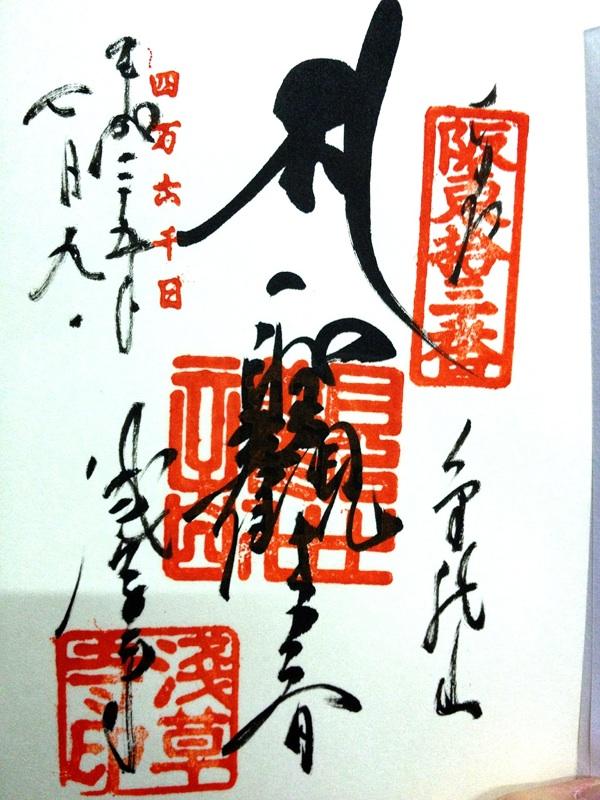 奉拝
阪東拾三番
金龍山
聖観世音
四万六千日
平成二十五年
七月九日
浅草寺
淺草寺印